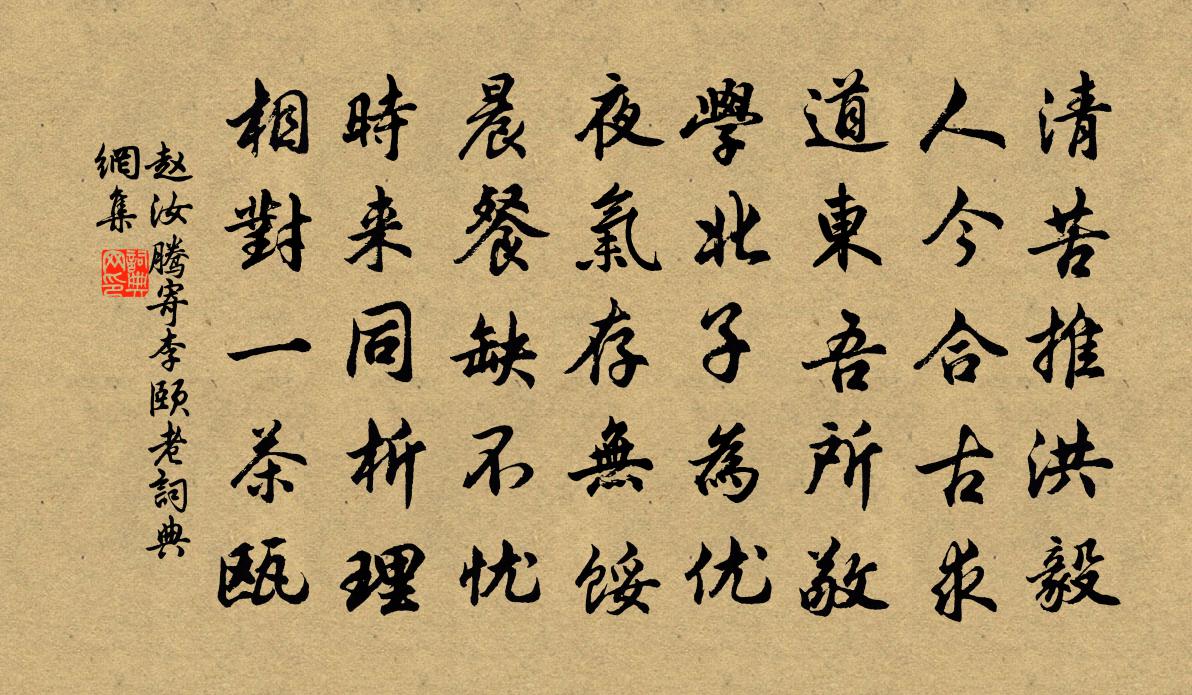 清苦推洪毅
人今合古求
道東吾所敬
學北子為优
夜氣存無餒
晨餐缺不忧
時来同析理
相對一茶甌
赵汝腾寄李頤老詞典
網集
詞典
网印